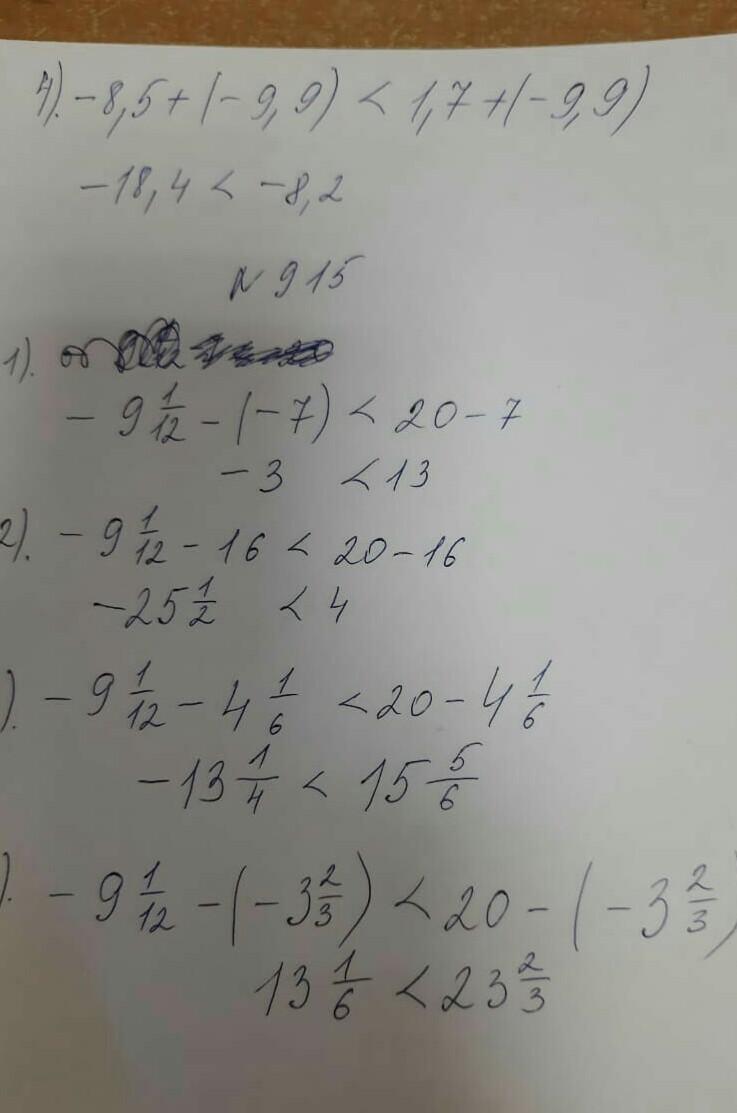 4). -8,5+(-9,9) < 1,7+(-9,9)
-18,4 < -8,2
N 915
1).
-9 1/12 - (-7) < 20-7
-3 < 13
2). -9 1/12 - 16 < 20-16
-25 1/2 < 4
). -9 1/12 - 4 1/6 < 20 - 4 1/6
-13 1/4 < 15 5/6
). -9 1/12 - (-3 2/3) < 20 - (-3 2/3)
13 1/6 < 23 2/3